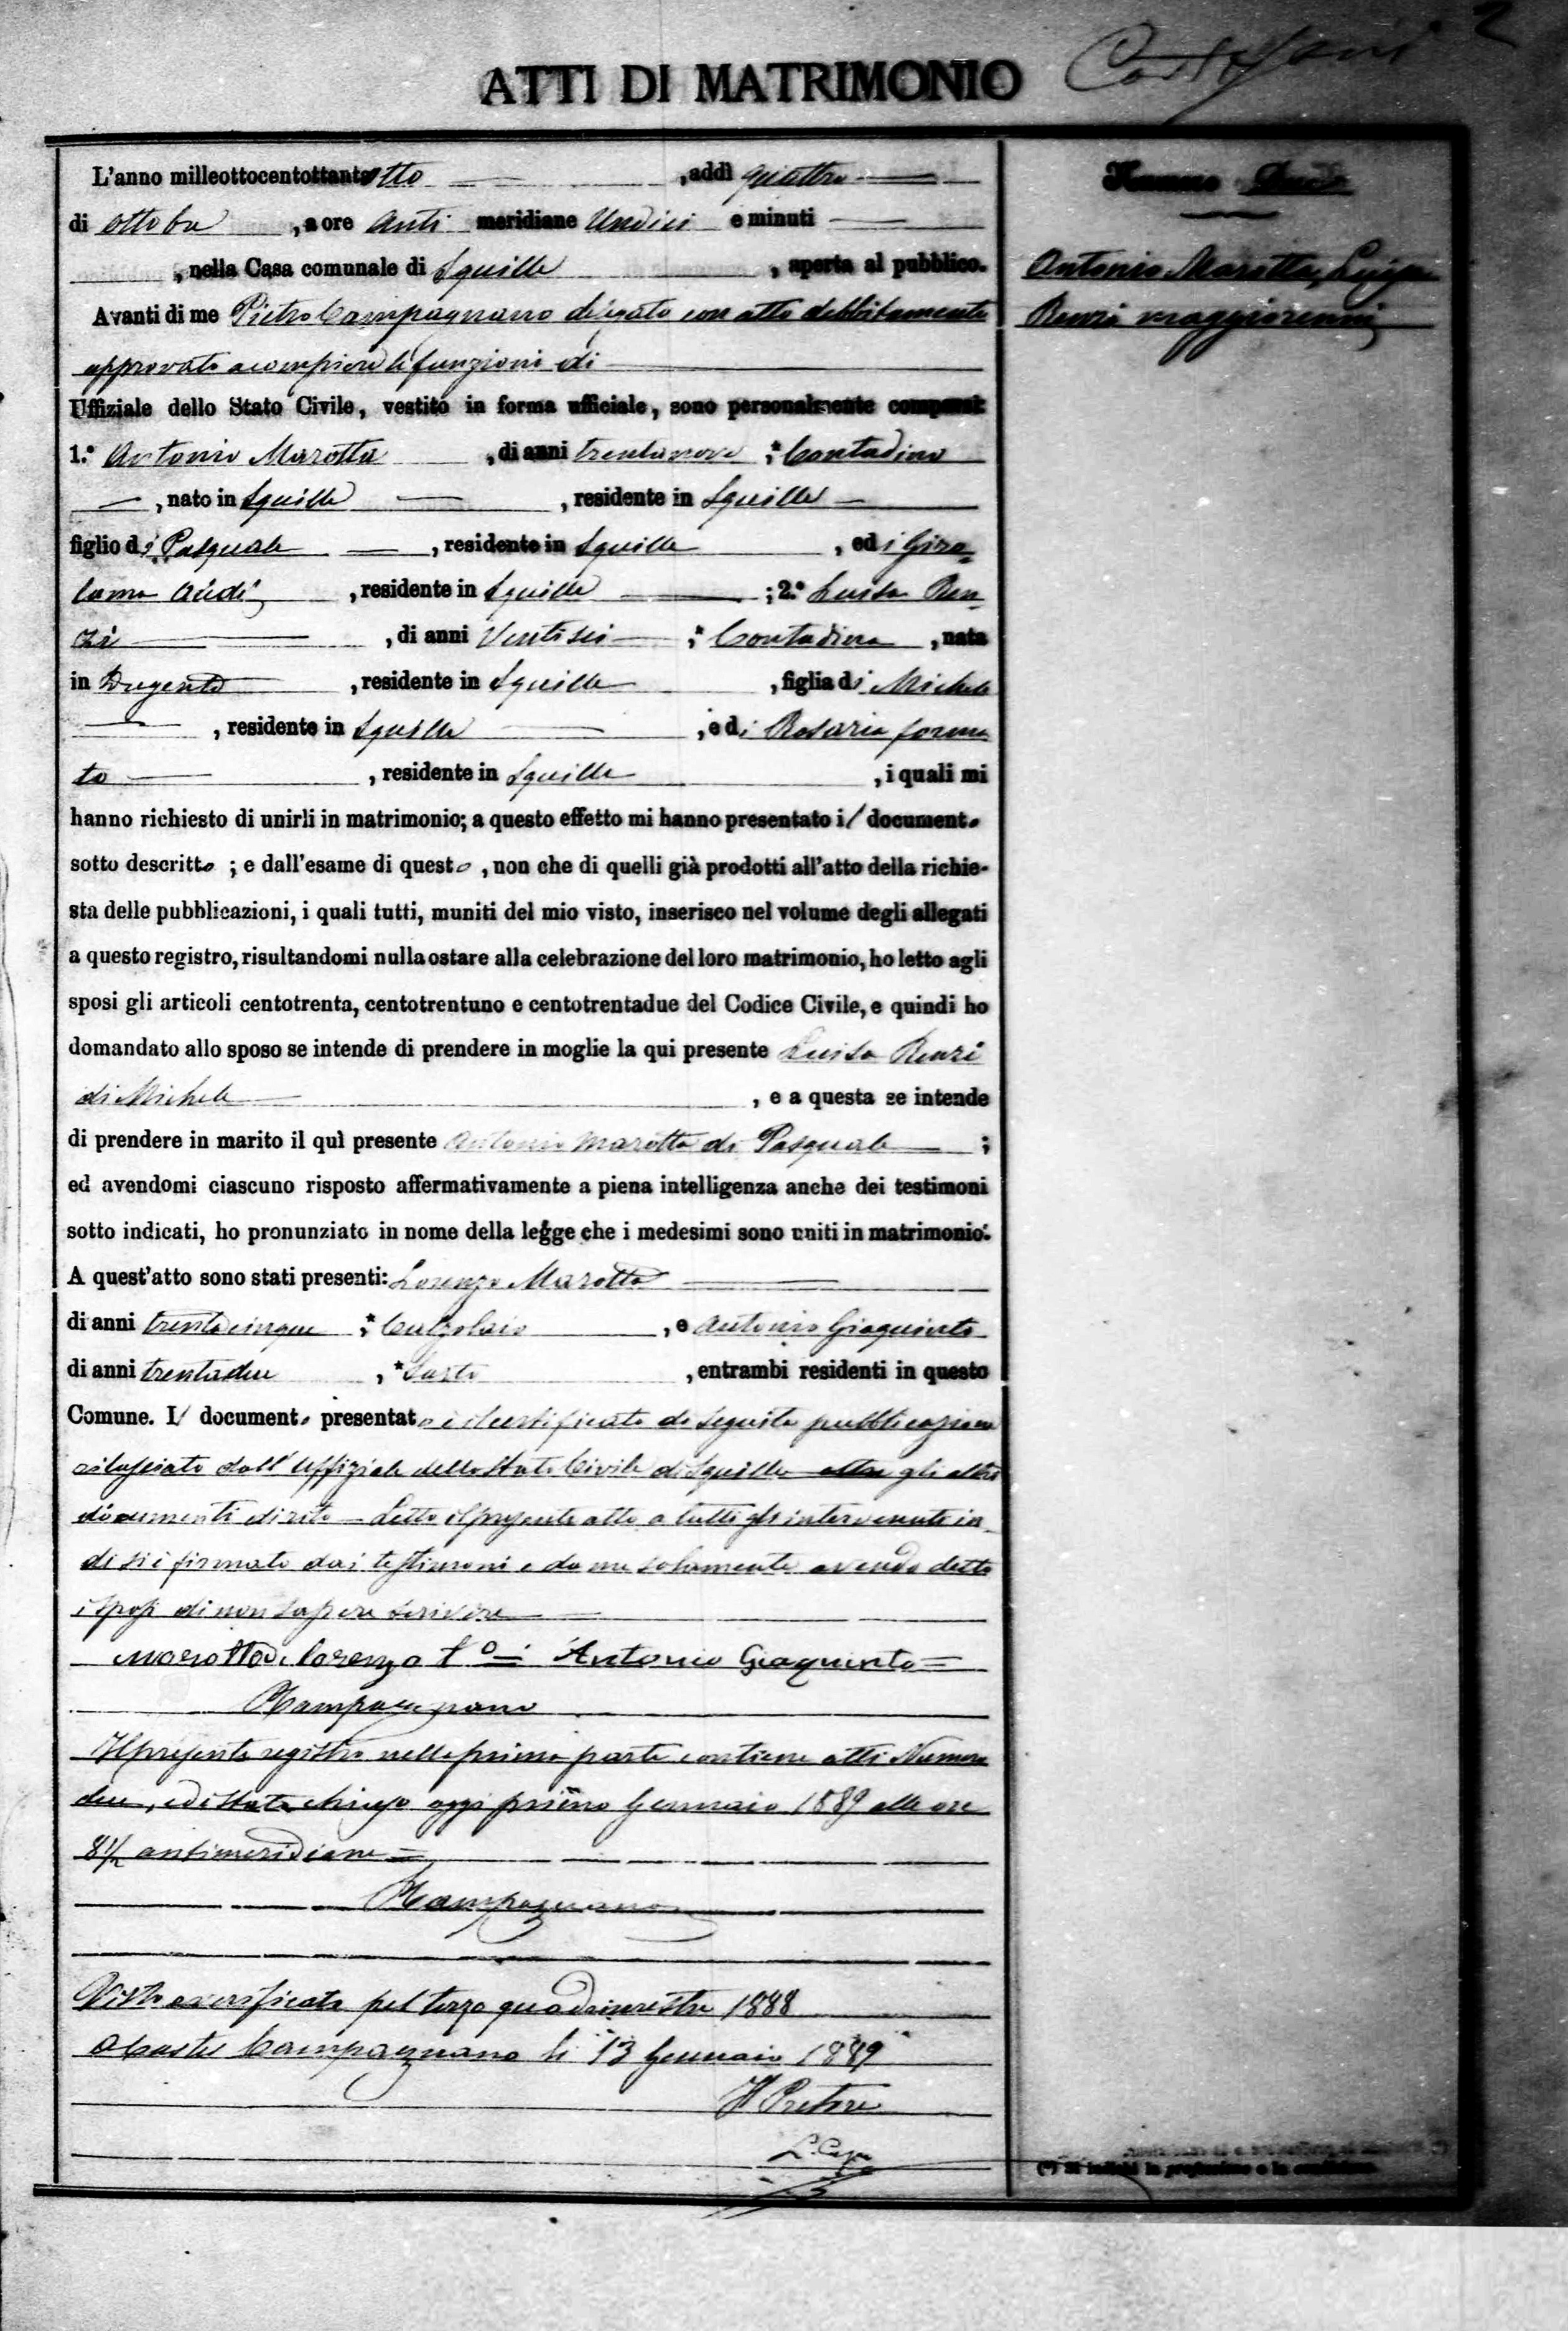 2
ATTI DI MATRIMONIO
L'anno milleottocentottantotto, addì quattro
di ottobre, a ore Anti meridiane Undici e minuti
, nella Casa comunale di Squille, aperta al pubblico.
Avanti di me Pietro Campagnano delegato con atto debbitamente
approvato a compiere le funzioni di
Uffiziale dello Stato Civile, vestito in forma ufficiale, sono personalmente comparsi:
1.° Antonio Marotta, di anni trentanove, * Contadino
, nato in Squille, residente in Squille
figlio di Pasquale, residente in Squille, ed i Giro=
lama, residente in Squille; 2.° Luisa Ren=
zi, di anni Ventisei; * Contadina, nata
in Dugenta, residente in Squille, figlia di Michele
, residente in Squille, e di Rosaria forma
to, residente in Squille, i quali mi
hanno richiesto di unirli in matrimonio; a questo effetto mi hanno presentato il documento
sotto descritto; e dall'esame di questo, non che di quelli già prodotti all'atto della richie-
sta delle pubblicazioni, i quali tutti, muniti del mio visto, inserisco nel volume degli allegati
a questo registro, risultandomi nulla ostare alla celebrazione del loro matrimonio, ho letto agli
sposi gli articoli centotrenta, centotrentuno e centotrentadue del Codice Civile, e quindi ho
domandato allo sposo se intende di prendere in moglie la qui presente Luisa Renzi
di Michele, e a questa se intende
di prendere in marito il quì presente Antonio Marotta di Pasquale;
ed avendomi ciascuno risposto affermativamente a piena intelligenza anche dei testimoni
sotto indicati, ho pronunziato in nome della legge che i medesimi sono uniti in matrimonio.
A quest'atto sono stati presenti: Lorenzo Marotta
di anni trentacinque, * Calzolaio, e Antonio Giaquinto
di anni trentadue, * Sarto, entrambi residenti in questo
Comune. Il documento presentato è il certificato di seguita pubblicazione
rilasciato dall'Uffiziale dello Stato Civile di Squille oltre gli altri
documenti di rito - Letto il presente atto a tutti gli intervenuti in=
di si è firmato dai testimoni e da me solamente avendo detto
i sposi di non sapere scrivere
Marotta Lorenzo t° = Antonio Giaquinto =
PCampagnano
Il presente registro nella prima parte contiene atti Numero
due, ed è stato chiuso oggi primo Gennaio 1889 alle ore
8½ antimeridiane =
PCampagnano
Visto e verificato pel terzo quadrimestre 1888
Castel Campagnano li 13 Gennaio 1889
Il Pretore
Numero Due
Antonio Marotta, Luisa
Renzi maggiorenni
(*) Si indichi la professione o la condizione.